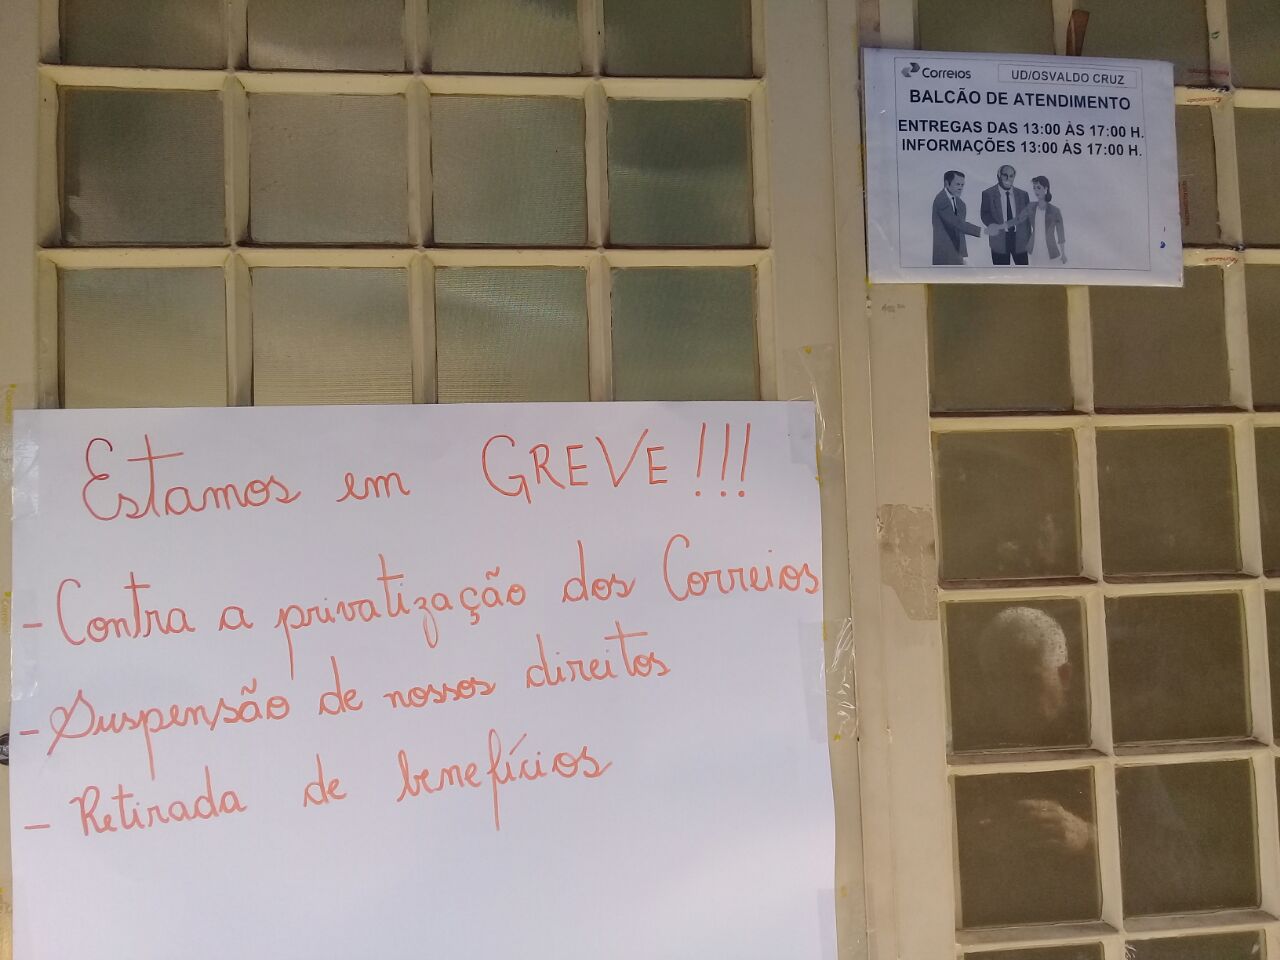 Correios
UD/OSVALDO CRUZ
BALCÃO DE ATENDIMENTO
ENTREGAS DAS 13:00 ÀS 17:00 H.
INFORMAÇÕES 13:00 ÀS 17:00 H.
Estamos em GREVE!!!
- Contra a privatização dos Correios
- Suspensão de nossos direitos
- Retirada de benefícios